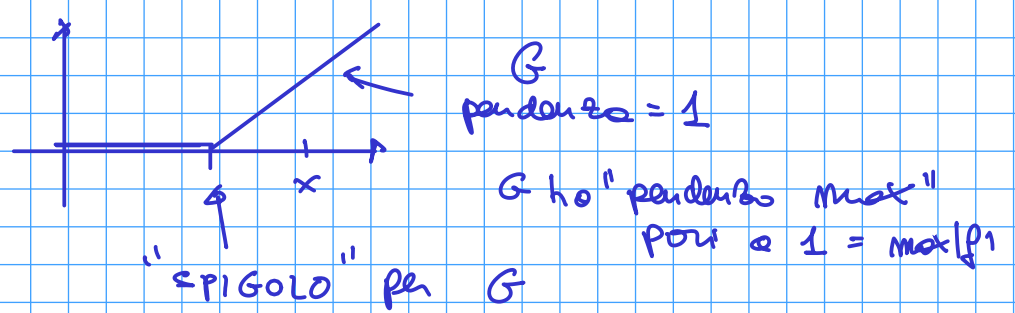 G
pendenza = 1
x
G ha "pendenza max"
pari a 1 = max|f|
"SPIGOLO" per G